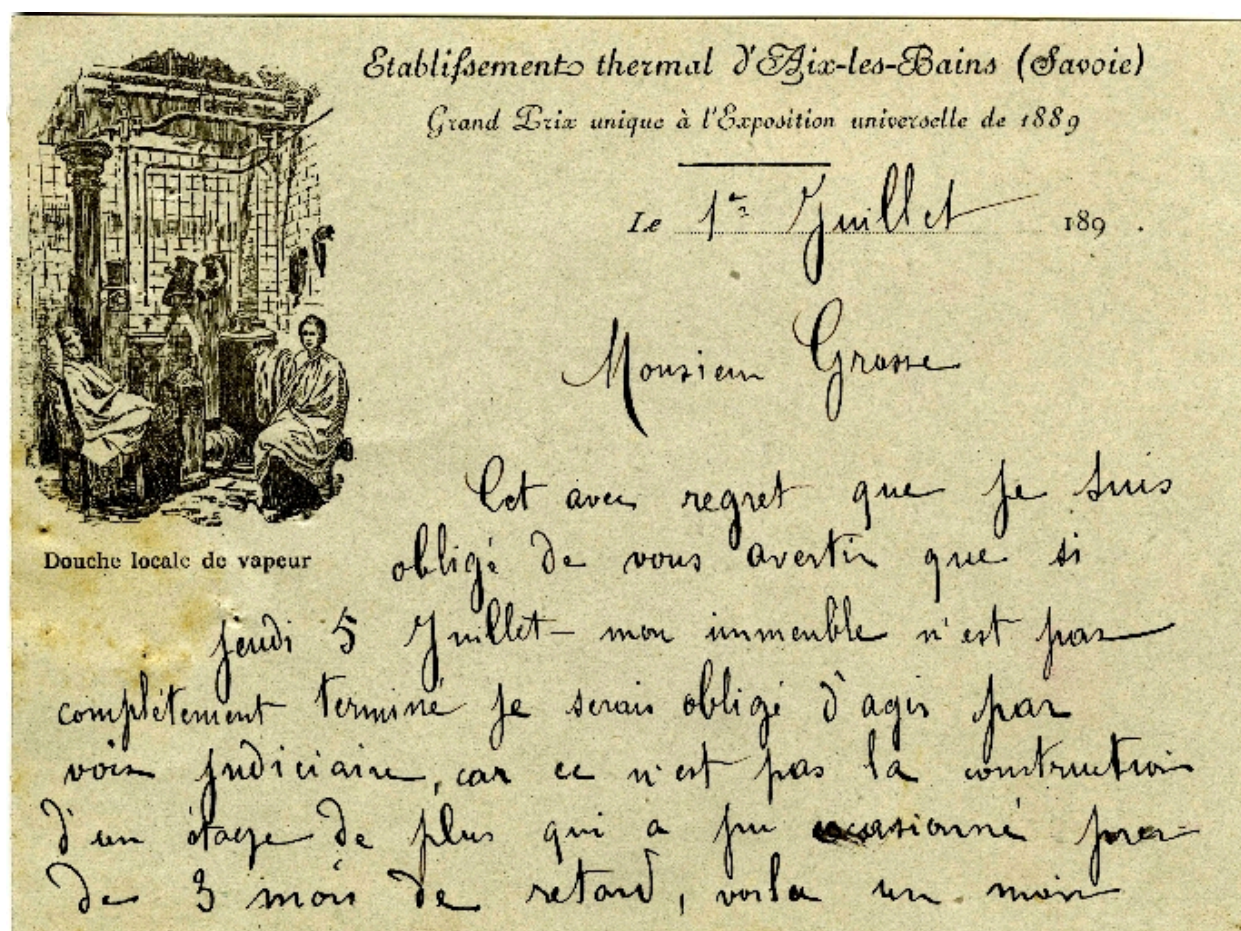 Etablissement thermal d'Aix-les-Bains (Savoie)
Grand Prix unique à l'Exposition universelle de 1889
Le 1er Juillet 189 .
Monsieur Grosse
Douche locale de vapeur
Cet avec regret que je suis
obligé de vous avertir que si
jeudi 5 Juillet - mon immeuble n'est pas
complétement terminé je serais obligé d'agir par
voix judiciaire, car ce n'est pas la construction
d'un étage de plus qui a pu occasionné pres
de 3 mois de retard, voila un mois